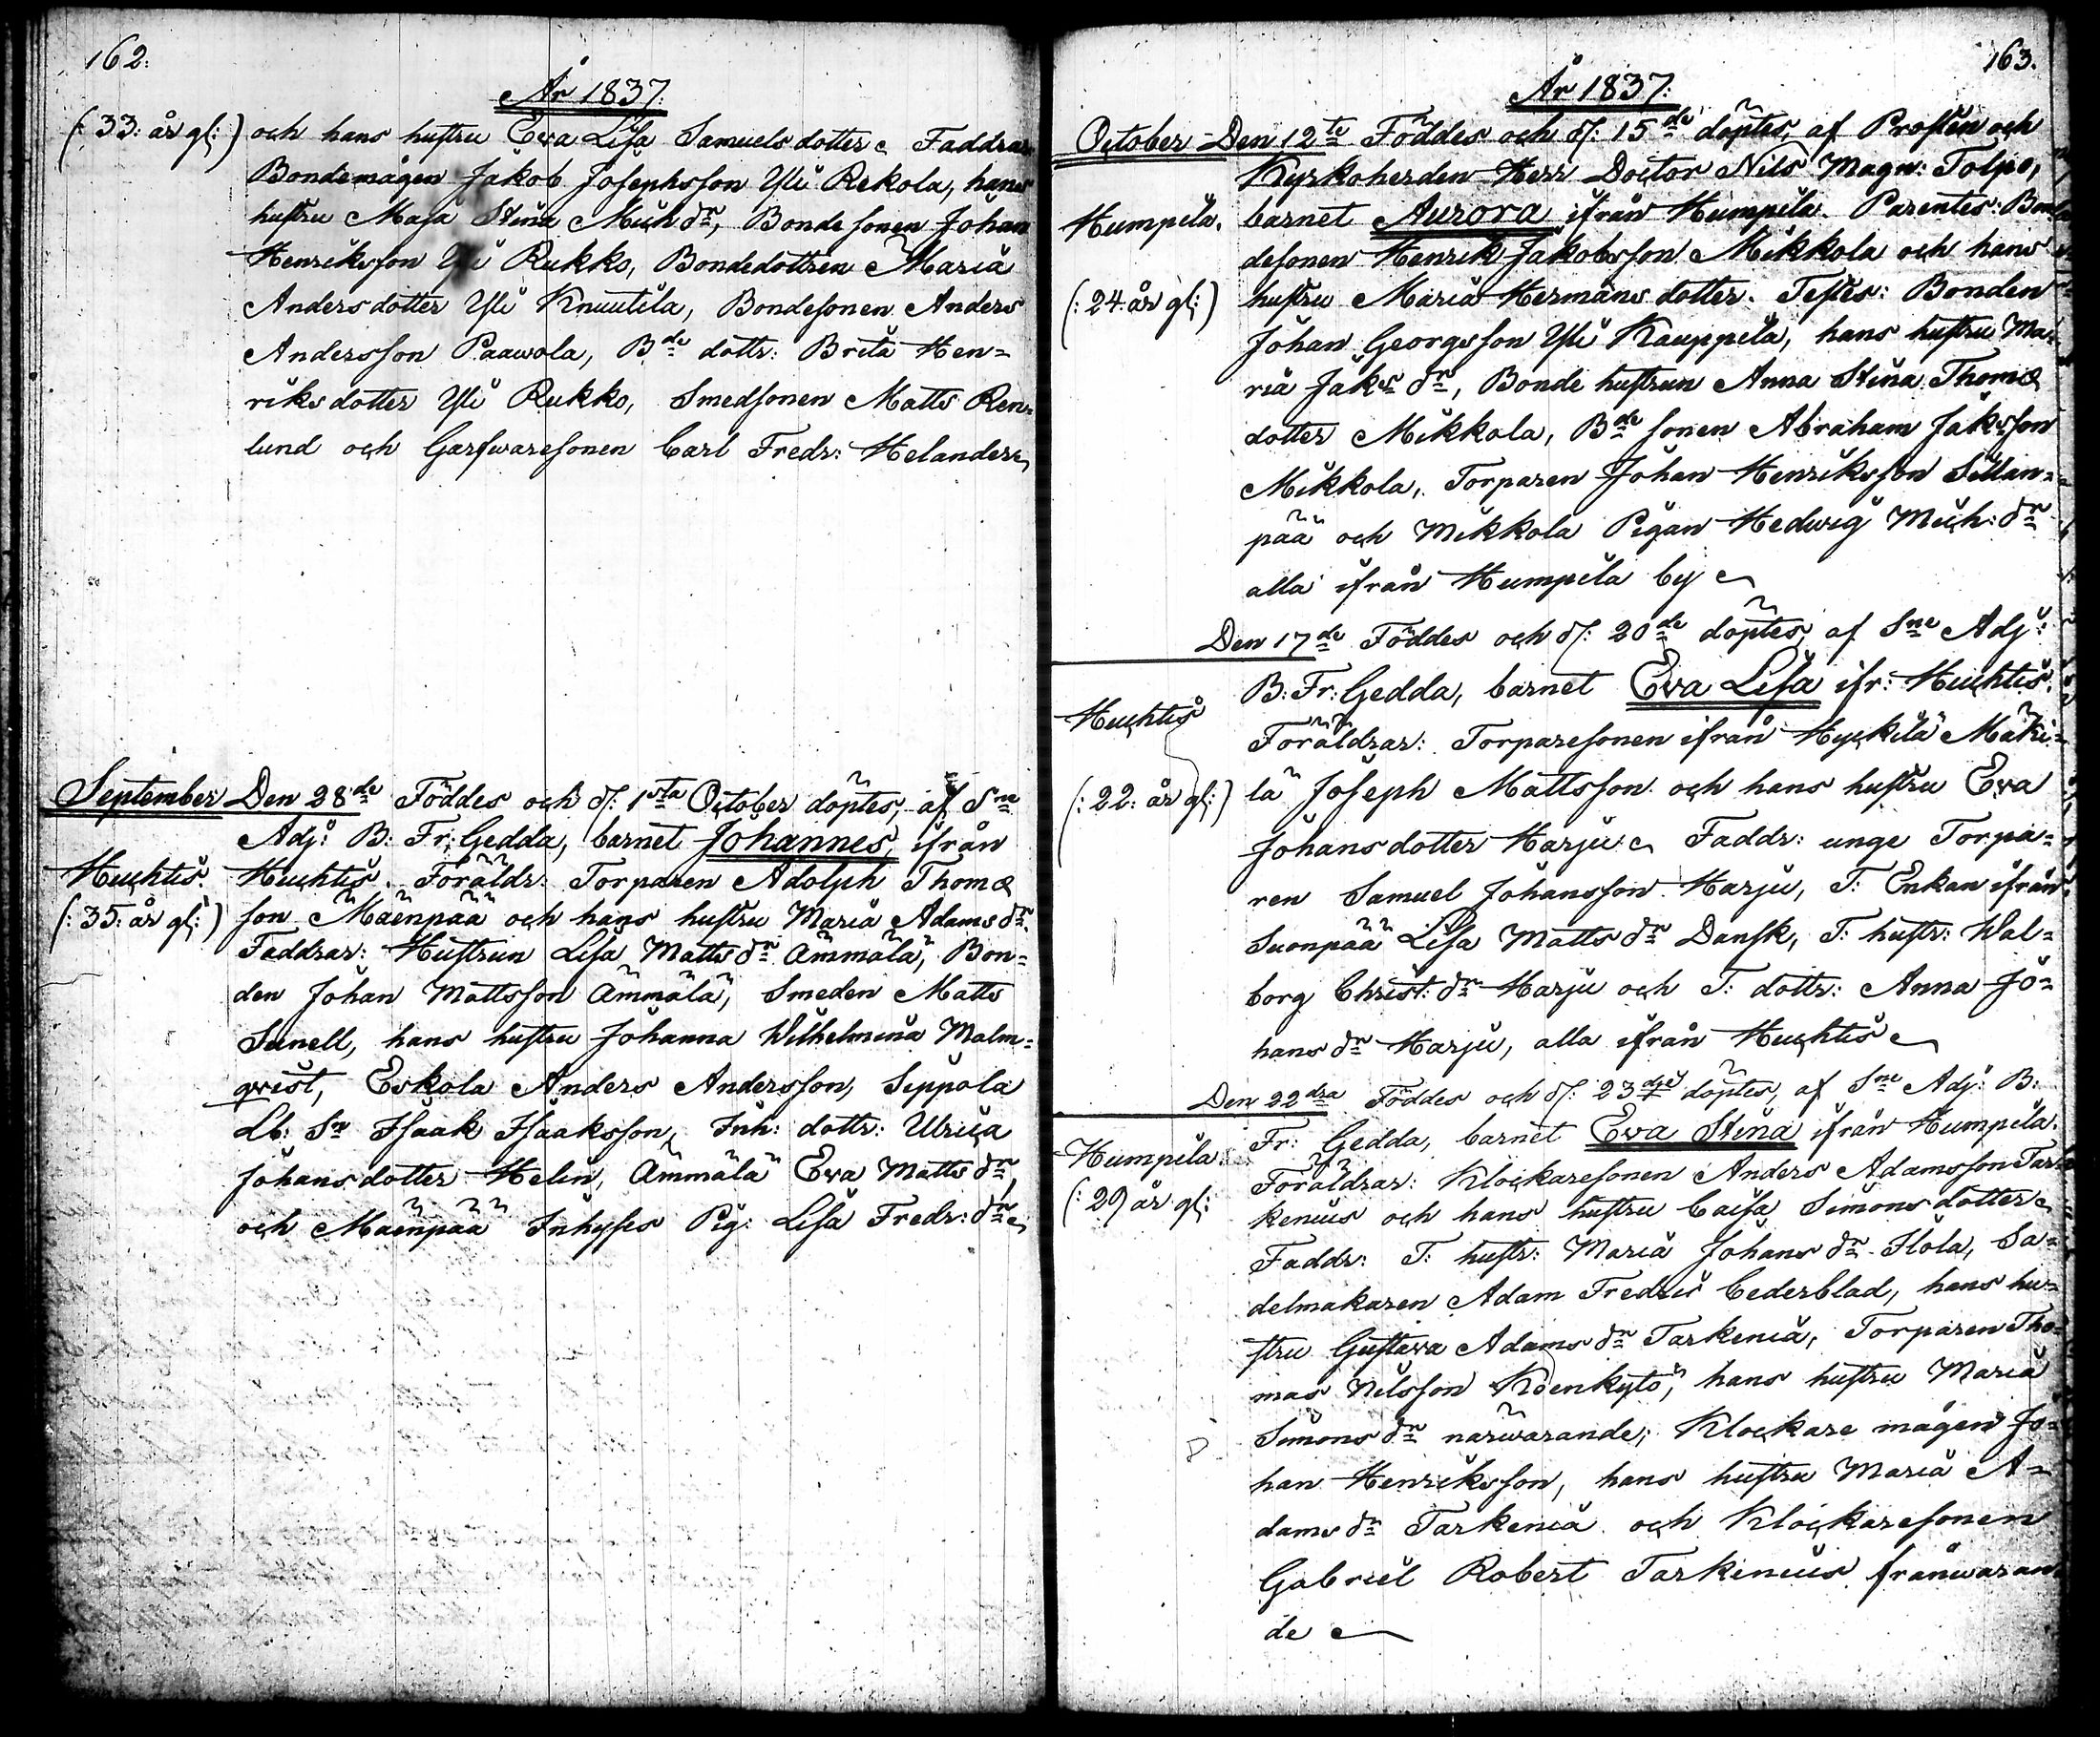 162.
År 1837.
(: 33: år gl: ) och hans hustru Eva Lisa Samuels dotter. Faddrar
Bondemågen Jakob Josephsson Yli Rekola, hans
hustru Maja Stina Mich dr, Bonde sonen Johan
Henriksson Yli Rukko, Bondedottren Maria
Anders dotter Yli Knuutila, Bondesonen Anders
Andersson Paawola, Bde dottr: Brita Hen=
riks dotter Yli Rukko, Smedsonen Matts Ren=
lund och Garfwaresonen Carl Fredr: Helander
September Den 28de Föddes och d: 1sta October döptes, af Sne
Adj: B: Fr: Gedda, barnet Johannes, ifrån
Huchtis. Huchtis. Föräldr: Torparen Adolph Thomæ
(: 35: år gl: ) son Mäenpää och hans hustru Maria Adams dr.
Faddrar: Hustrun Lisa Matts dr Ämmälä, Bon=
den Johan Mattsson Ämmälä, Smeden Matts
Sunell, hans hustru Johanna Wilhelmina Malm=
qvist, Eskola Anders Andersson, Seppälä
Lb: Sn Isaak Isaaksson, Inh: dottr: Ulrica
Johans dotter Helin, Ämmälä Eva Matts dr,
och Mäenpää Inhyses Pig: Lisa Fredr: dr
163.
År 1837.
October Den 12te Föddes och d: 15de döptes, af Prosten och
Kyrkoherden Herr Doctor Nils Magn: Tolpo,
Humpila. barnet Aurora ifrån Humpila. Parentes: Bon
desonen Henrik Jakobsson Mikkola och hans
(: 24: år gl: ) hustru Maria Hermans dotter. Testes: Bonden
Johan Georgsson Yli Kauppila, hans hustru Ma=
ria Jaks dr, Bonde hustrun Anna Stina Thomæ
dotter Mikkola, Bde sonen Abraham Jaksson
Mikkola, Torparen Johan Henriksson Sillan=
pää och Mikkola Pigan Hedwig Mich: dr
alla ifrån Humpila by
Den 17de Föddes och d: 20de döptes, af Sne Adj:
B: Fr: Gedda, barnet Eva Lisa ifr: Huchtis.
Huchtis Föräldrar: Torparesonen ifrån Hyckilä Mäki=
(: 22: år gl: ) lä Joseph Mattsson och hans hustru Eva
Johans dotter Harju. Faddr: unge Torpa=
ren Samuel Johansson Harju, T: Enkan ifrån
Suonpää Lisa Matts dr Dansk, T: hustr: Wal=
borg Christ: dr Harju och T: dottr: Anna Jo=
hans dr Harju, alla ifrån Huchtis
Den 22dra Föddes och d: 23dje döptes, af Sne Adj: B:
Fr: Gedda, barnet Eva Stina ifrån Humpila.
Humpila. Föräldrar: Klockaresonen Anders Adamsson Tar
(: 29 år gl: kenius och hans hustru Caisa Simons dotter
Faddr: T: hustr: Maria Johans dr Ilola, Sa=
delmakaren Adam Fredric Cederblad, hans hu=
stru Gustava Adams dr Tarkenia, Torparen Tho=
mas Nilsson Koenkytö, hans hustru Maria
Simons dr närwarande; Klockare mågen Jo=
han Henriksson, hans hustru Maria A=
dams dr Tarkenia och Klockaresonen
Gabriel Robert Tarkenius frånwaran
de